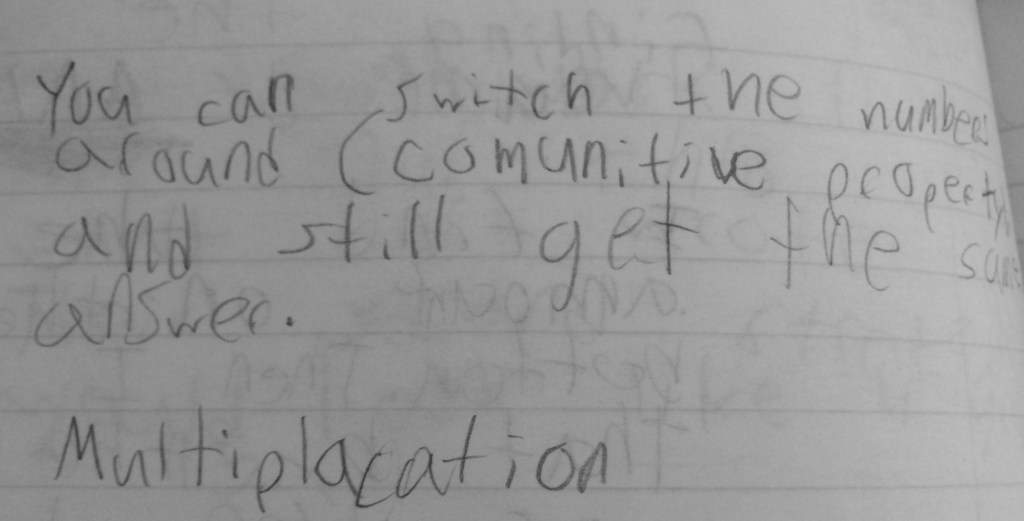 You can switch the numbers
around (comunitive property)
and still get the same
answer.
Multiplacation